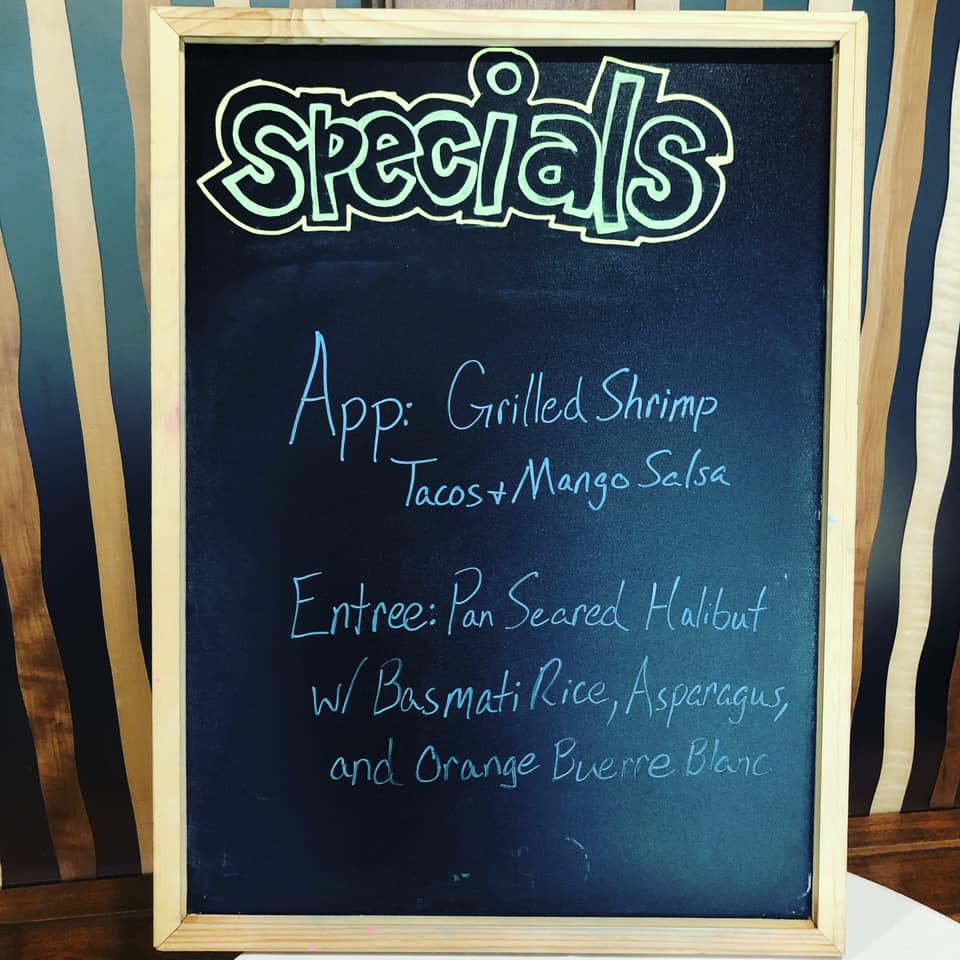 Specials
App: Grilled Shrimp
Tacos + Mango Salsa
Entree: Pan Seared Halibut
w/ Basmati Rice, Asparagus,
and Orange Buerre Blanc